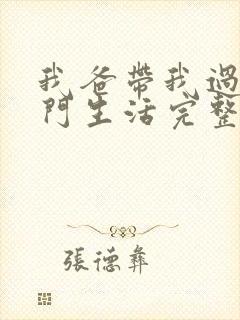 我爸帶我過
門生活完整
張德彝